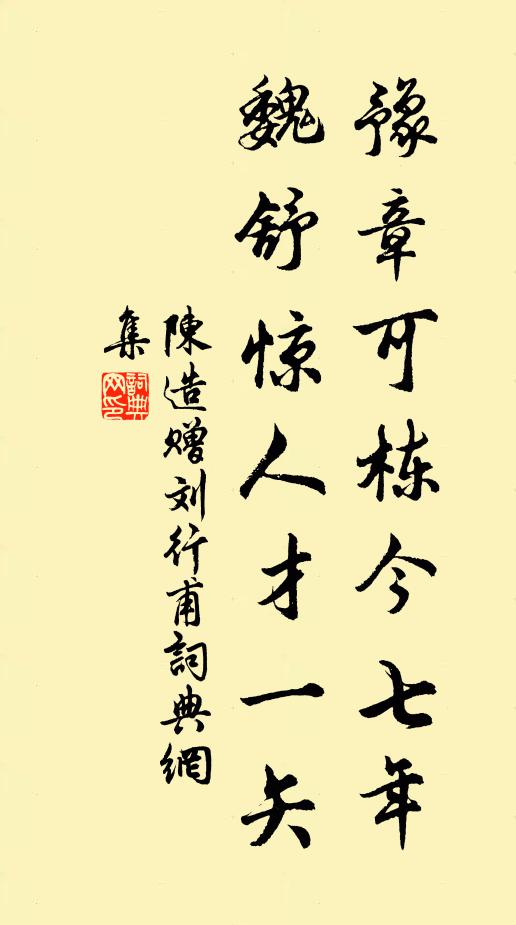 豫章可栋今七年
魏舒惊人才一矢
陳造赠刘行甫詞典網
集
詞典
网印